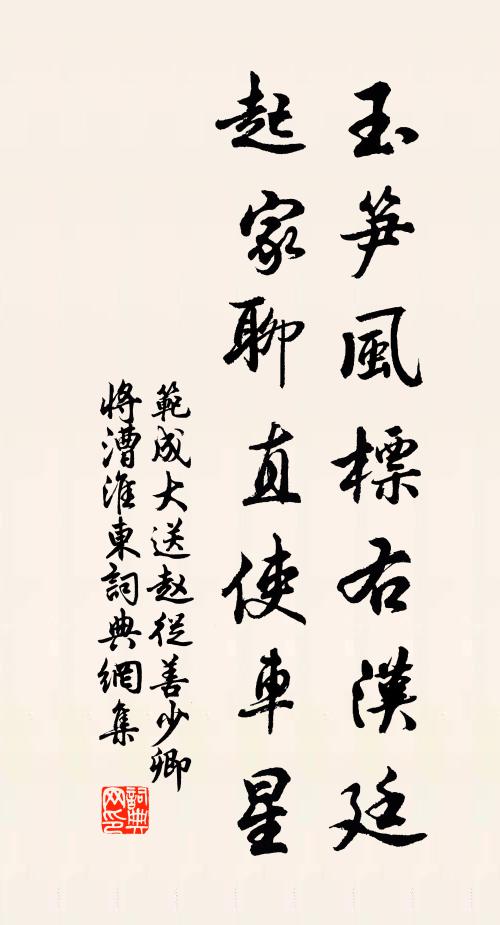 玉笋風標右漢廷
起家聊直使車星
範成大送赵從善少卿
將漕淮東詞典網集
詞典
网印